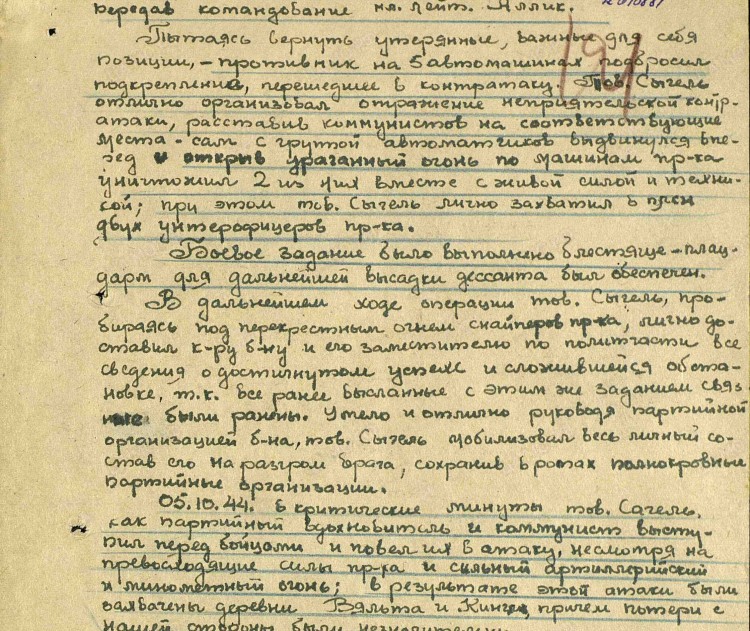 передав командование мл. лейт. Яллик.
Пытаясь вернуть утерянные, важные для себя
позиции, - противник на 5 автомашинах подбросил
подкрепление, перешедшее в контратаку. Тов. Сыгель
отлично организовал отражение неприятельской контр-
атаки, расставив коммунистов на соответствующие
места - сам с группой автоматчиков выдвинулся впе-
ред и открыв ураганный огонь по машинам пр-ка
уничтожил 2 из них вместе с живой силой и техни-
кой; при этом тов. Сыгель лично захватил в плен
двух унтерофицеров пр-ка.
Боевое задание было выполнено блестяще - плац-
дарм для дальнейшей высадки дессанта был обеспечен.
В дальнейшем ходе операции тов. Сыгель, про-
бираясь под перекрестным огнем снайперов пр-ка, лично до-
ставил к-ру б-ну и его заместителю по политчасти все
сведения о достигнутом успехе и сложившейся обста-
новке, т.к. все ранее высланные с этим же заданием связ-
ные были ранены. Умело и отлично руководя партийной
организацией б-на, тов. Сыгель мобилизовал весь личный со-
став его на разгром врага, сохранив в ротах полнокровные
партийные организации.
05.10.44. в критические минуты тов. Сагель,
как партийный вдохновитель и коммунист высту-
пил перед бойцами и повел их в атаку, несмотря на
превосходящие силы пр-ка и сильный артиллерийский
и минометный огонь; в результате этой атаки были
захвачены деревни Вяльта и причем потери с
нашей стороны были незначительны